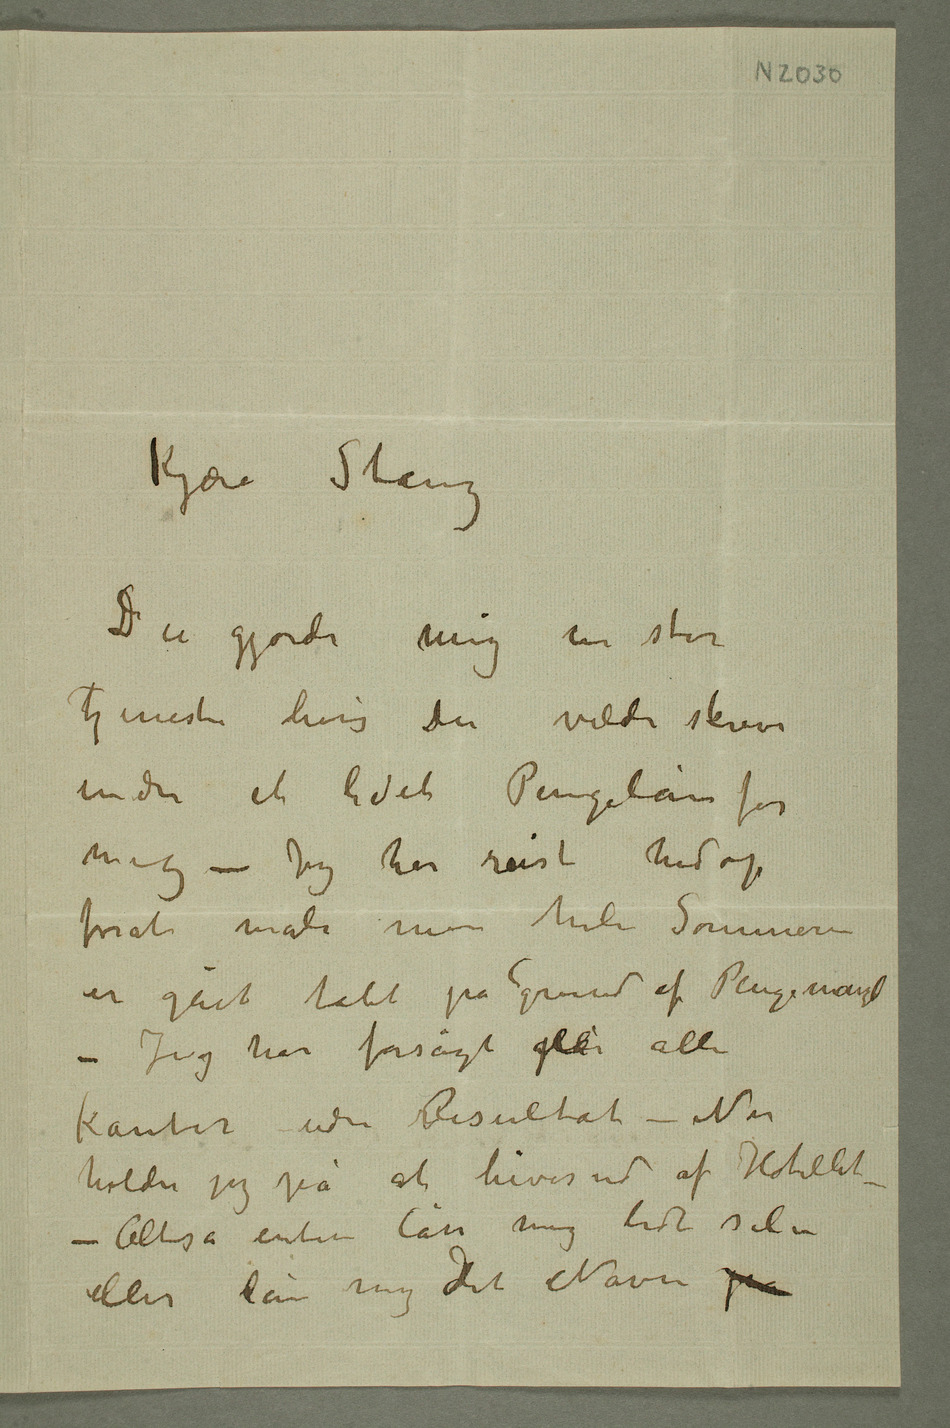 N 2030
Kjære Stang
Du gjorde mig en stor
tjeneste hvis du vilde skrive
under et lidet Pengelån for
mig – Jeg har reist hid op
forat male men hele Sommeren
er gået tabt på Grund af Pengemangel
– Jeg har forsøgt alle
Kanter uden Resultat – Nu
holder jeg på at hives ud af Hotellet –
– Altså enten lån mig lidt selv
eller lån mig dit Navn på